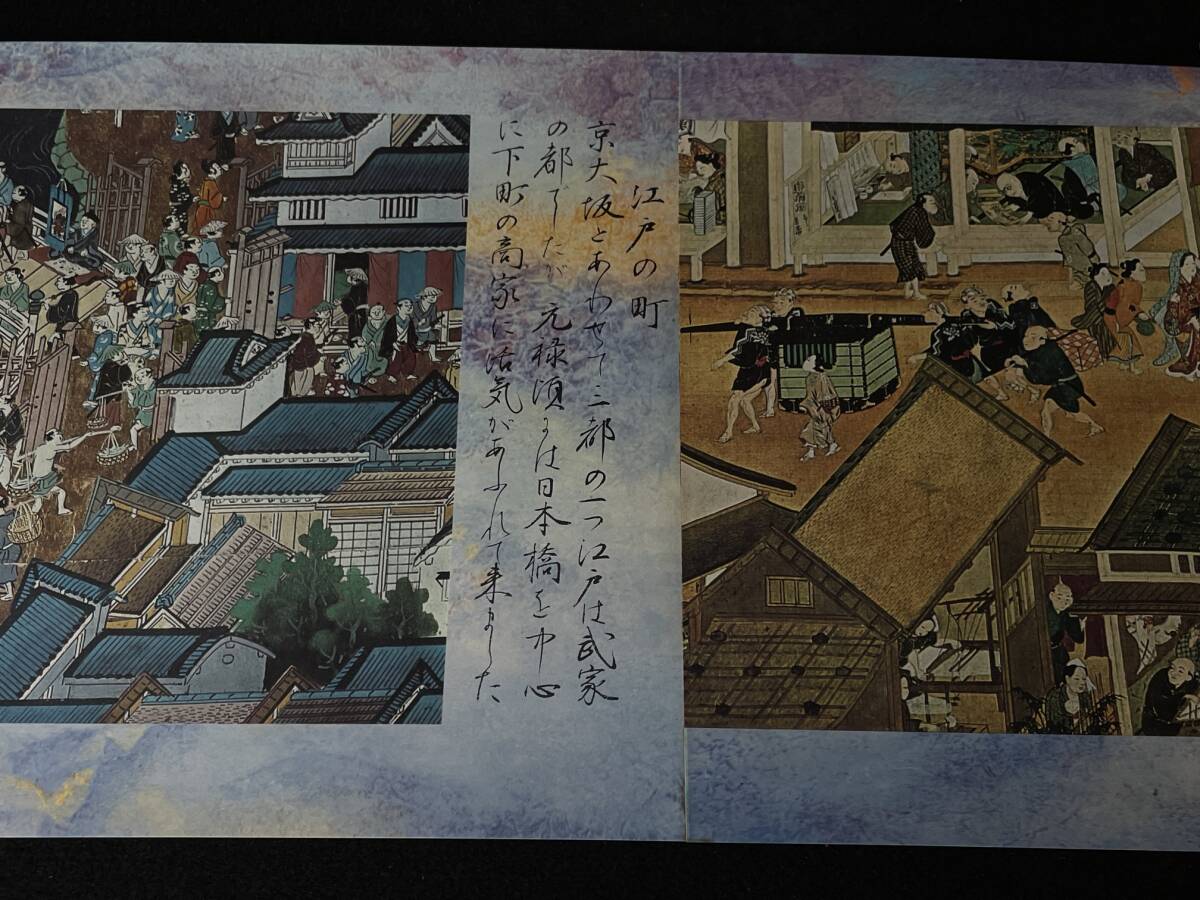 江戸の町
京大坂とあわせて三都の一つ江戸は武家
の都でしたが 元禄頃には日本橋を中心
に下町の商家に活気があふれて来ました